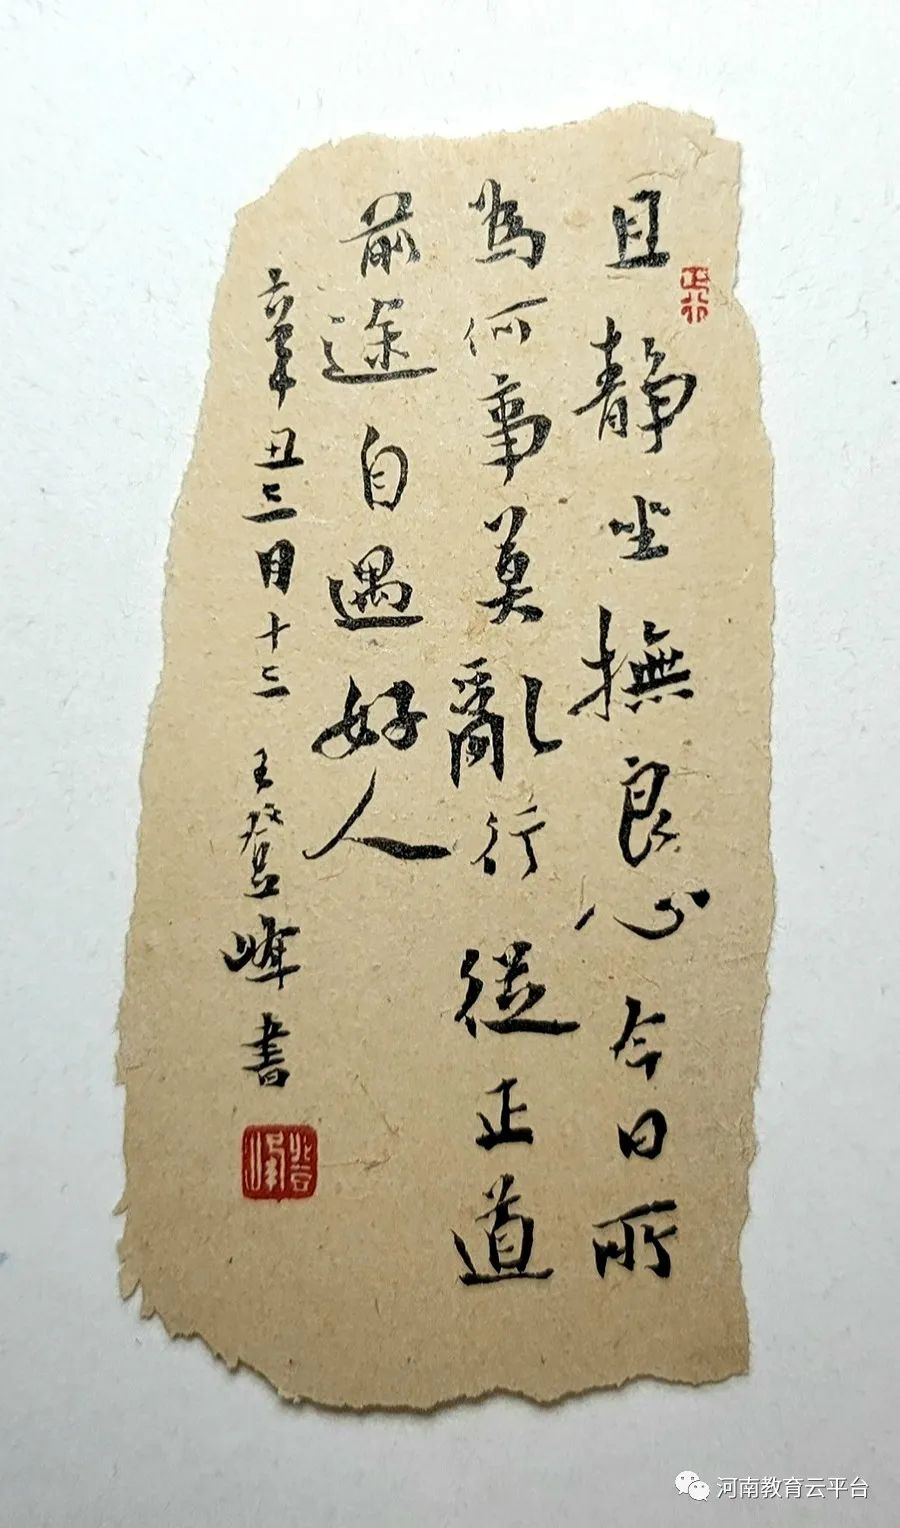 且靜坐撫良心今日所
為何事莫亂行從正道
前途自遇好人
辛丑三月十三王登峰書
登峰
河南教育云平台